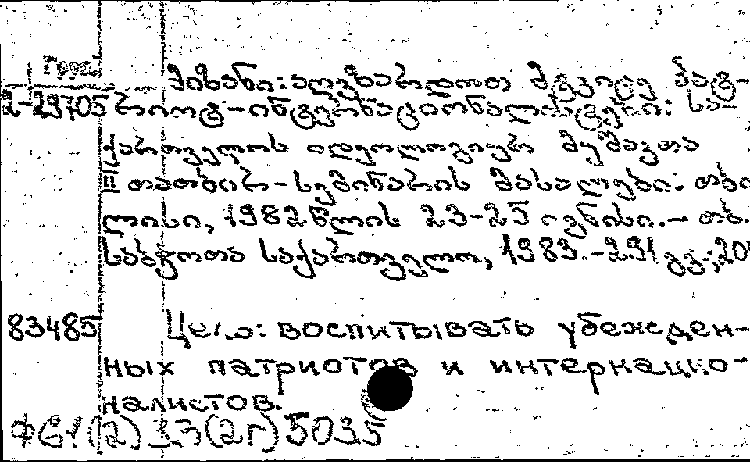 Груз.
2-29705
მიზანი: აღვზარდოთ მტკიცე პატ-
რიოტ-ინტერნაციონალისტები: სა-
ქართველოს იდეოლოგიურ მუშაკთა
III თათბირ-სემინარის მასალები: თბი
ლისი, 1982 წლის 23-25 ივნისი.- თბ.
საბჭოთა საქართველო, 1983.-291 გვ.;20
83485 Цель: воспитывать убежден-
ных патриотов и интернацио-
налистов.
Ф61(2) 33(2Г) 5035